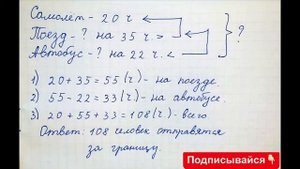 Самолёт - 20 ч.
Поезд - ? на 35 ч. >
Автобус - ? на 22 ч. <
?
1) 20 + 35 = 55 (ч) - на поезде.
2) 55 - 22 = 33 (ч) - на автобусе.
3) 20 + 55 + 33 = 108 (ч.) - всего
Ответ: 108 человек отправятся
за границу.
Подписывайся👇